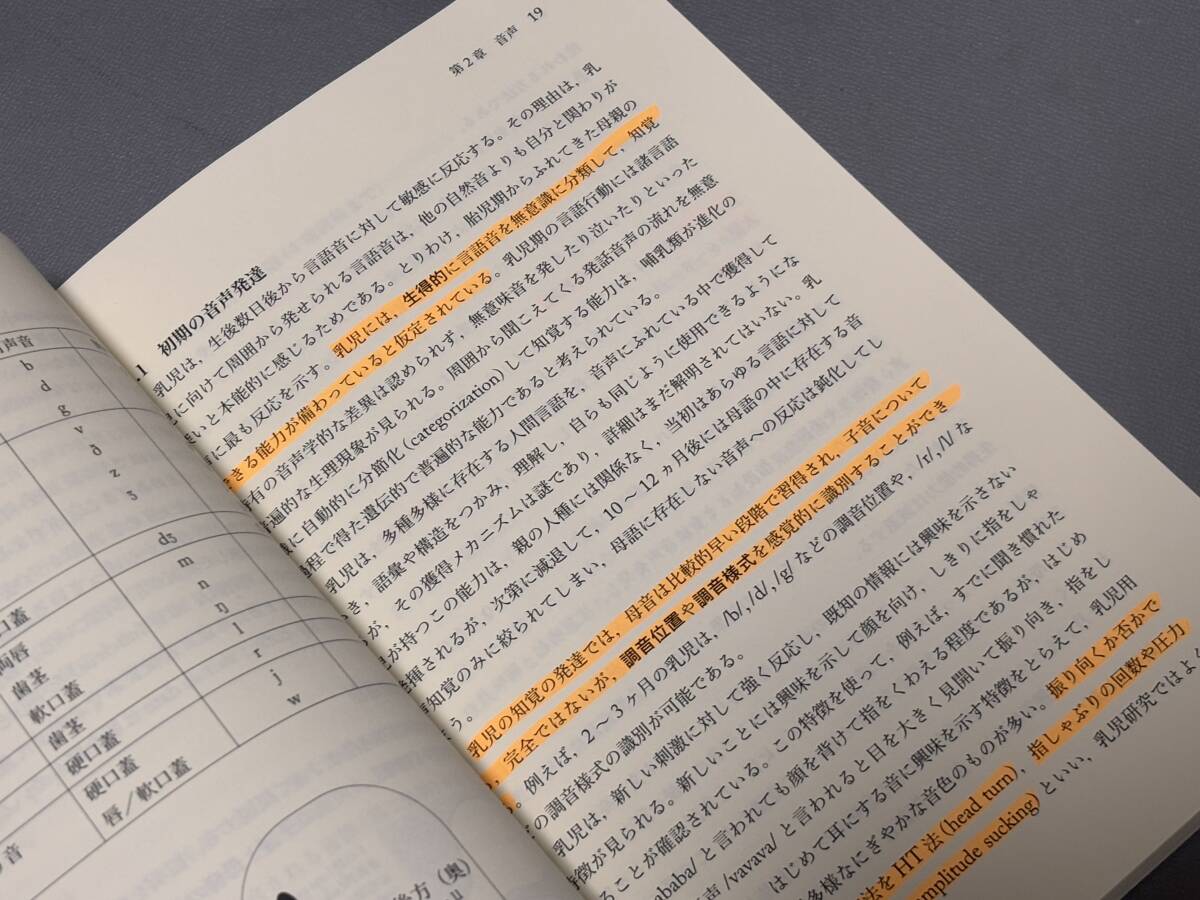 有声音
b
d
g
v
ð
z
ʒ
dʒ
m
n
ŋ
l
r
j
w
口蓋
両唇
歯茎
軟口蓋
歯茎
硬口蓋
硬口蓋
唇／軟口蓋
音
後方（奥）
u
第２章 音声 19
.1 初期の音声発達
乳児は、生後数日後から言語音に対して敏感に反応する。その理由は、乳
に向けて周囲から発せられる言語音は、他の自然音よりも自分と関わりが
いと本能的に感じるためである。とりわけ、胎児期からふれてきた母親の
に最も反応を示す。乳児には、生得的に言語音を無意識に分類して、知覚
きる能力が備わっていると仮定されている。乳児期の言語行動には諸言語
有の音声学的な差異は認められず、無意味音を発したり泣いたりといった
遍的な生理現象が見られる。周囲から聞こえてくる発話音声の流れを無意
に自動的に分節化（categorization）して知覚する能力は、哺乳類が進化の
過程で得た遺伝的で普遍的な能力であると考えられている。
乳児は、多種多様に存在する人間言語を、音声にふれている中で獲得して
き、語彙や構造をつかみ、理解し、自らも同じように使用できるようにな
が、その獲得メカニズムは謎であり、詳細はまだ解明されてはいない。乳
が持つこの能力は、親の人種には関係なく、当初はあらゆる言語に対して
発揮されるが、次第に減退して、10～12ヵ月後には母語の中に存在する音
知覚のみに絞られてしまい、母語に存在しない音声への反応は鈍化してし
う。
乳児の知覚の発達では、母音は比較的早い段階で習得され、子音について
、完全ではないが、調音位置や調音様式を感覚的に識別することができ
。例えば、2～3ヶ月の乳児は、/b/, /d/, /g/ などの調音位置や、/r/, /l/ な
の調音様式の識別が可能である。
乳児は、新しい刺激に対して強く反応し、既知の情報には興味を示さない
特徴が見られる。新しいことには興味を示して顔を向け、しきりに指をしゃ
ることが確認されている。この特徴を使って、例えば、すでに聞き慣れた
ababa/ と言われても顔を背けて指をくわえる程度であるが、はじめ
声 /vavava/ と言われると目を大きく見開いて振り向き、指をし
はじめて耳にする音に興味を示す特徴をとらえて、乳児用
多様なにぎやかな音色のものが多い。振り向くか否かで
法を HT 法（head turn）、指しゃぶりの回数や圧力
mplitude sucking）といい、乳児研究ではよく